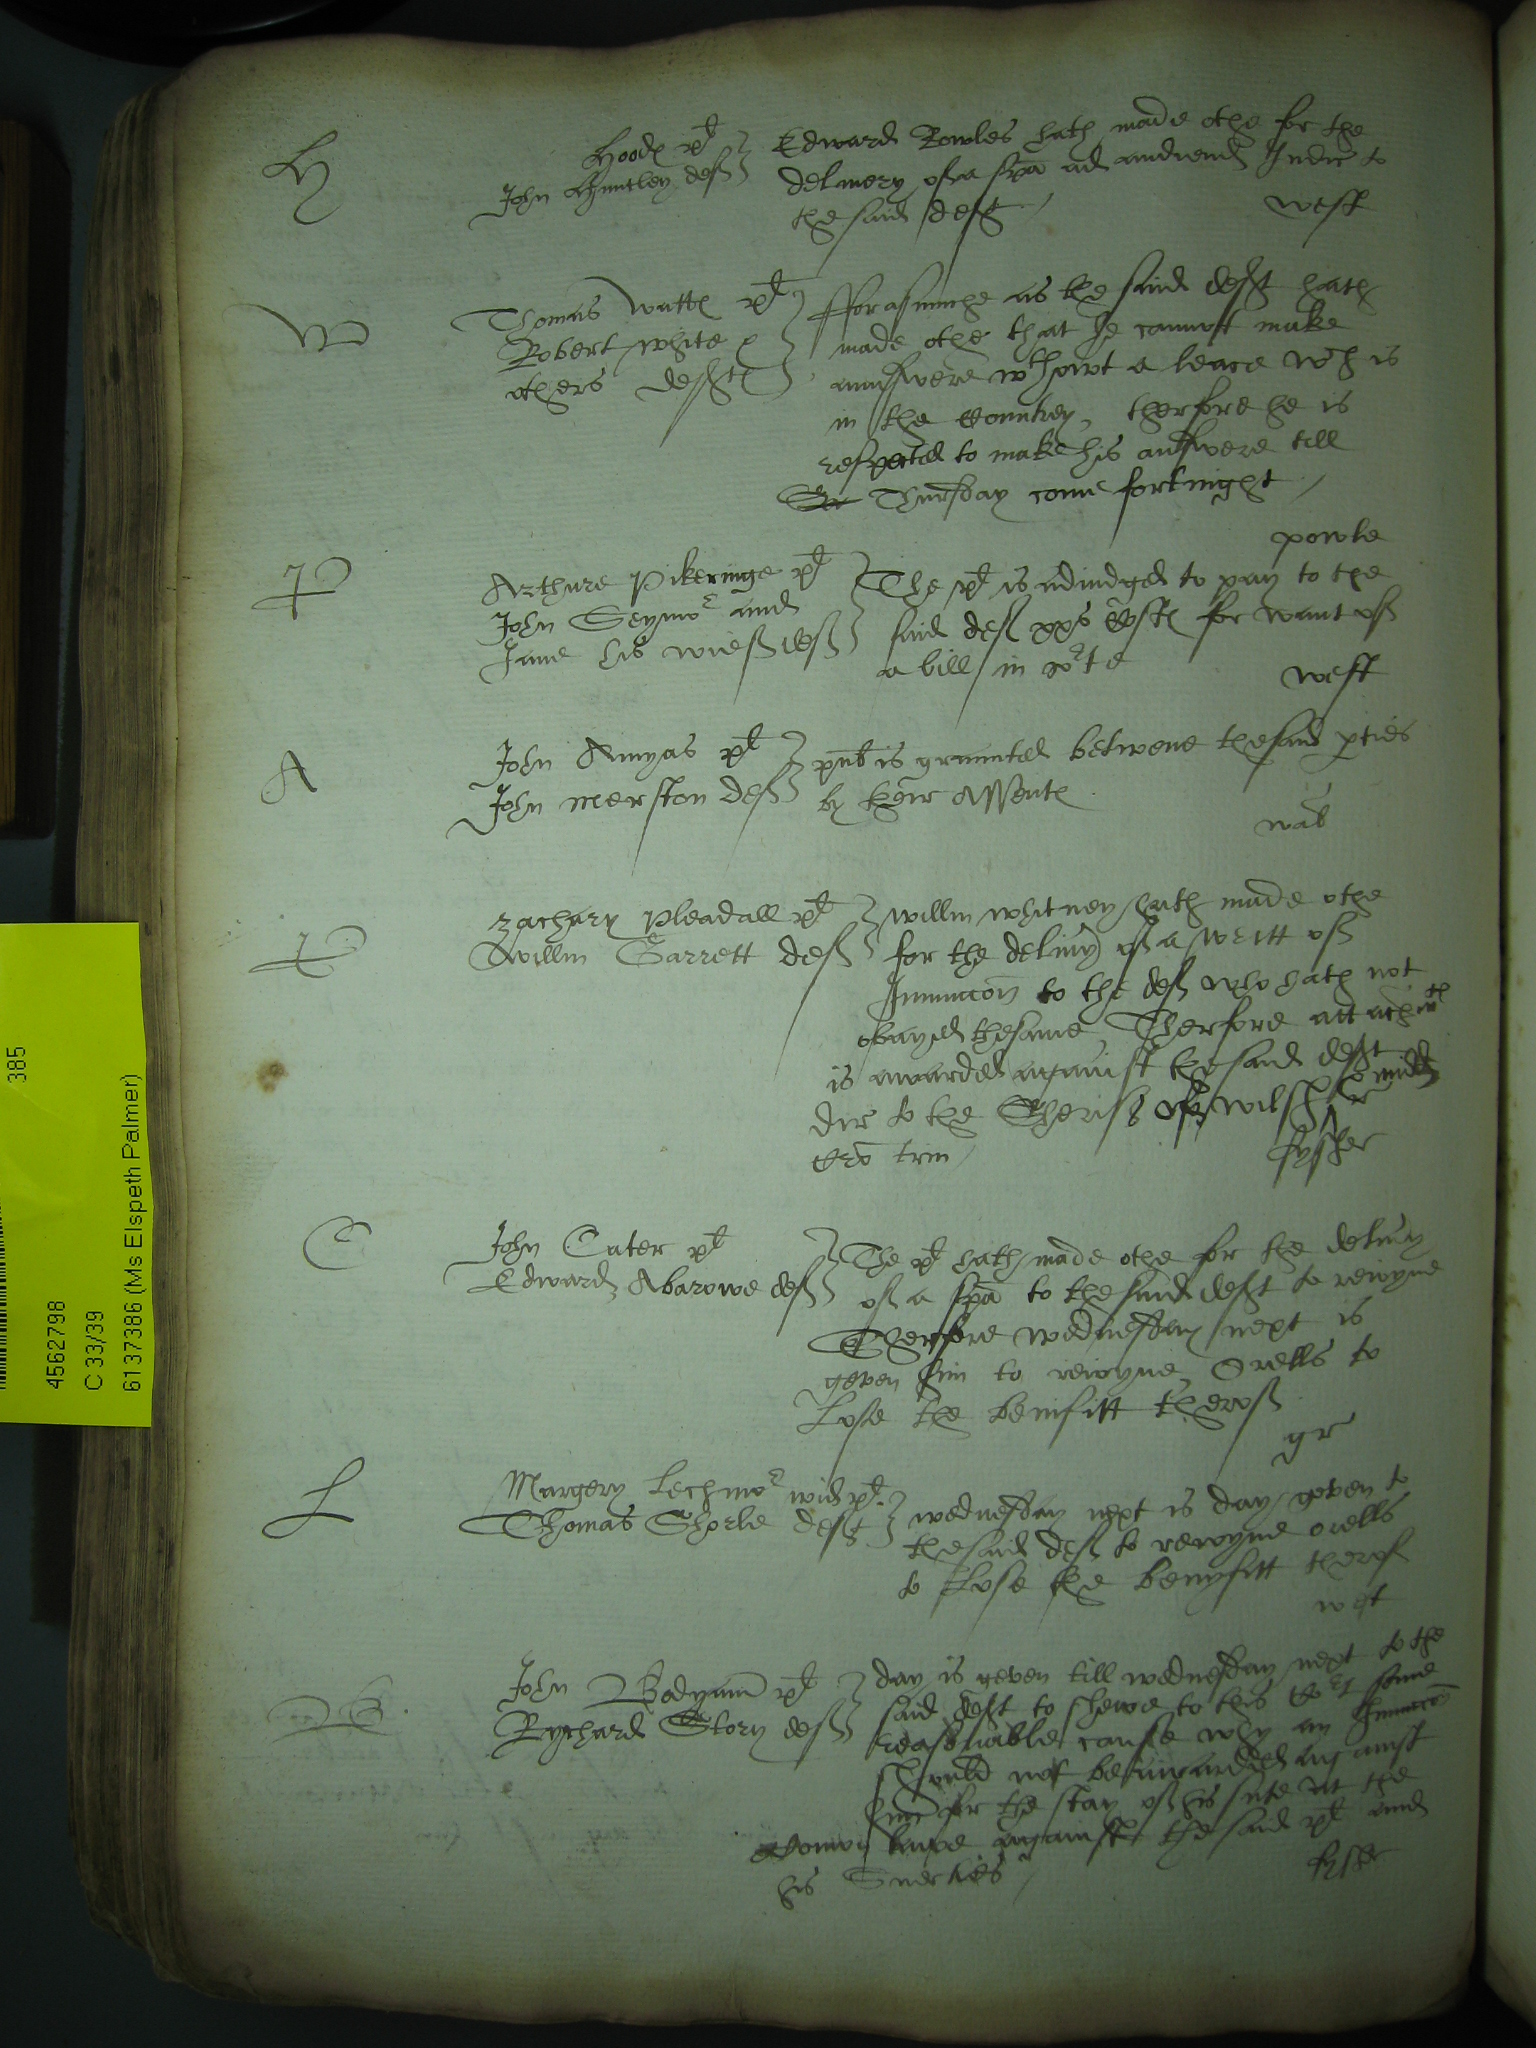 H
Hood pl
John Huntley def
Edward Rowles hath made othe for the
delivery of a spa ad audiend Judic to
the said deft
west
W
Thomas Watt pl
Robert White
others deft
fforasmuche as the said deft hath
made othe that he cannot make
aunswere wthowt a leace wch is
in the Countrey therfore he is
respected to make his answere till
Thursday come fortnight
powle
P
Arthure Pikeringe pl
John Seymor and
Jane his wief def
The pl is adiudged to pay to the
said def xxs Costs for want of
a bill in
west
A
John Amyas pl
John Merston def
is graunted betwene the said pties
by their Assent
P
Zachary Pleadall pl
Willm Garrett def
Willm Whitney hath made othe
for the delivy of a writt of
Iniunccon to the def who hath not
obayed the same Therfore attachmt
is awarded against the said deft
dir to the Sherif of Wilsh midd
trin
fyssher
C
John Cater pl
Edward Abarowe def
The pl hath made othe for the delivy
of a spa to the said deft to reioyne
Therfore wednesday next is
geven him to reioyne Or ells to
Lose the benifitt therof
gr
L
Margery Lechmor wid pl
Thomas Shorle deft
wednesday next is day geven to
the said def to reioyne or ells
to Lose the benyfitt therof
west
B
John Bodyam pl
Rychard Story def
day is geven till wednesday next to the
said deft to shewe to this Cort some
reasonable cause why an Iniunccon
should not be awarded against
him for the stay of his sute at the
comon lawe against the said pl and
his Suerties
fyssher
385
4562798
C 33/39
6137386 (Ms Elspeth Palmer)